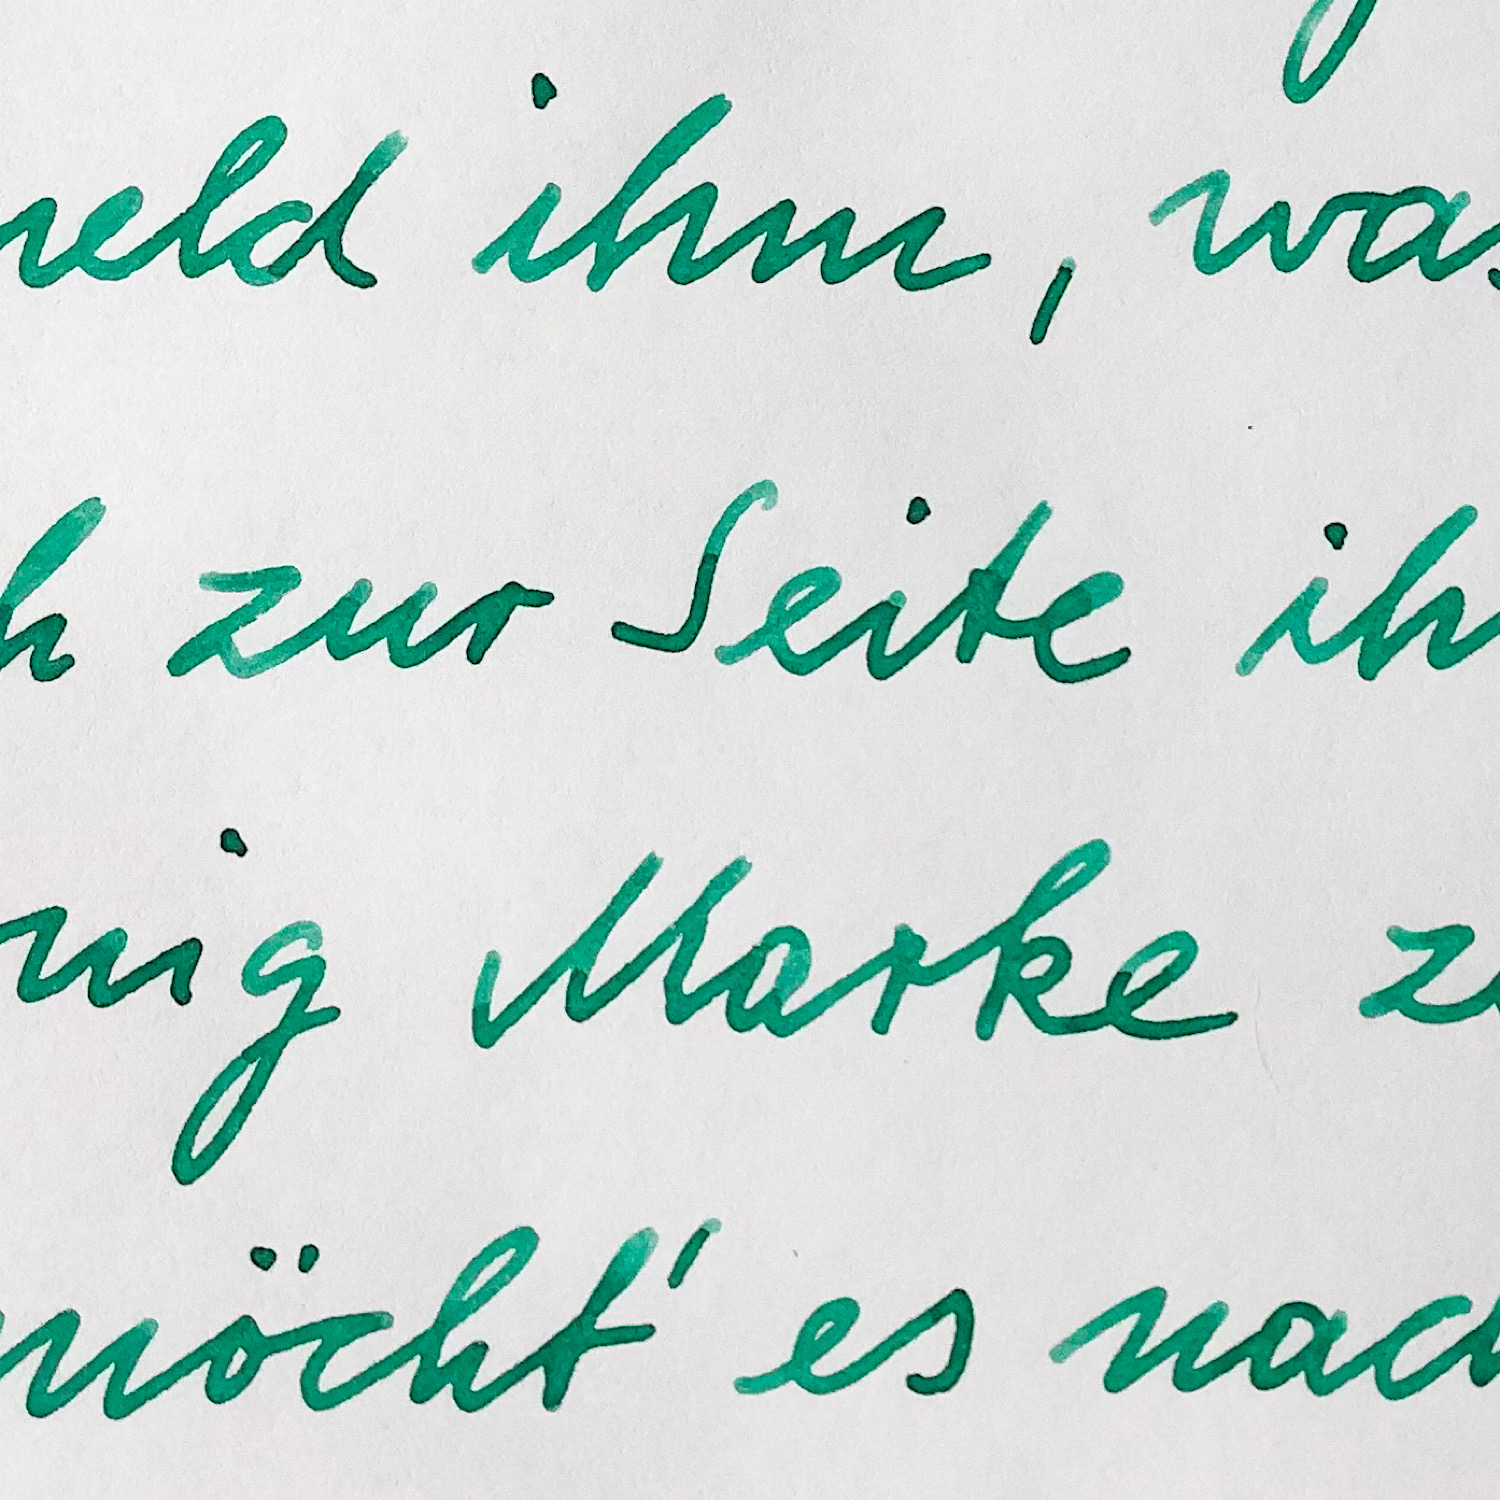 meld ihm, was
h zur Seite ih
nig Marke z
möcht' es nach